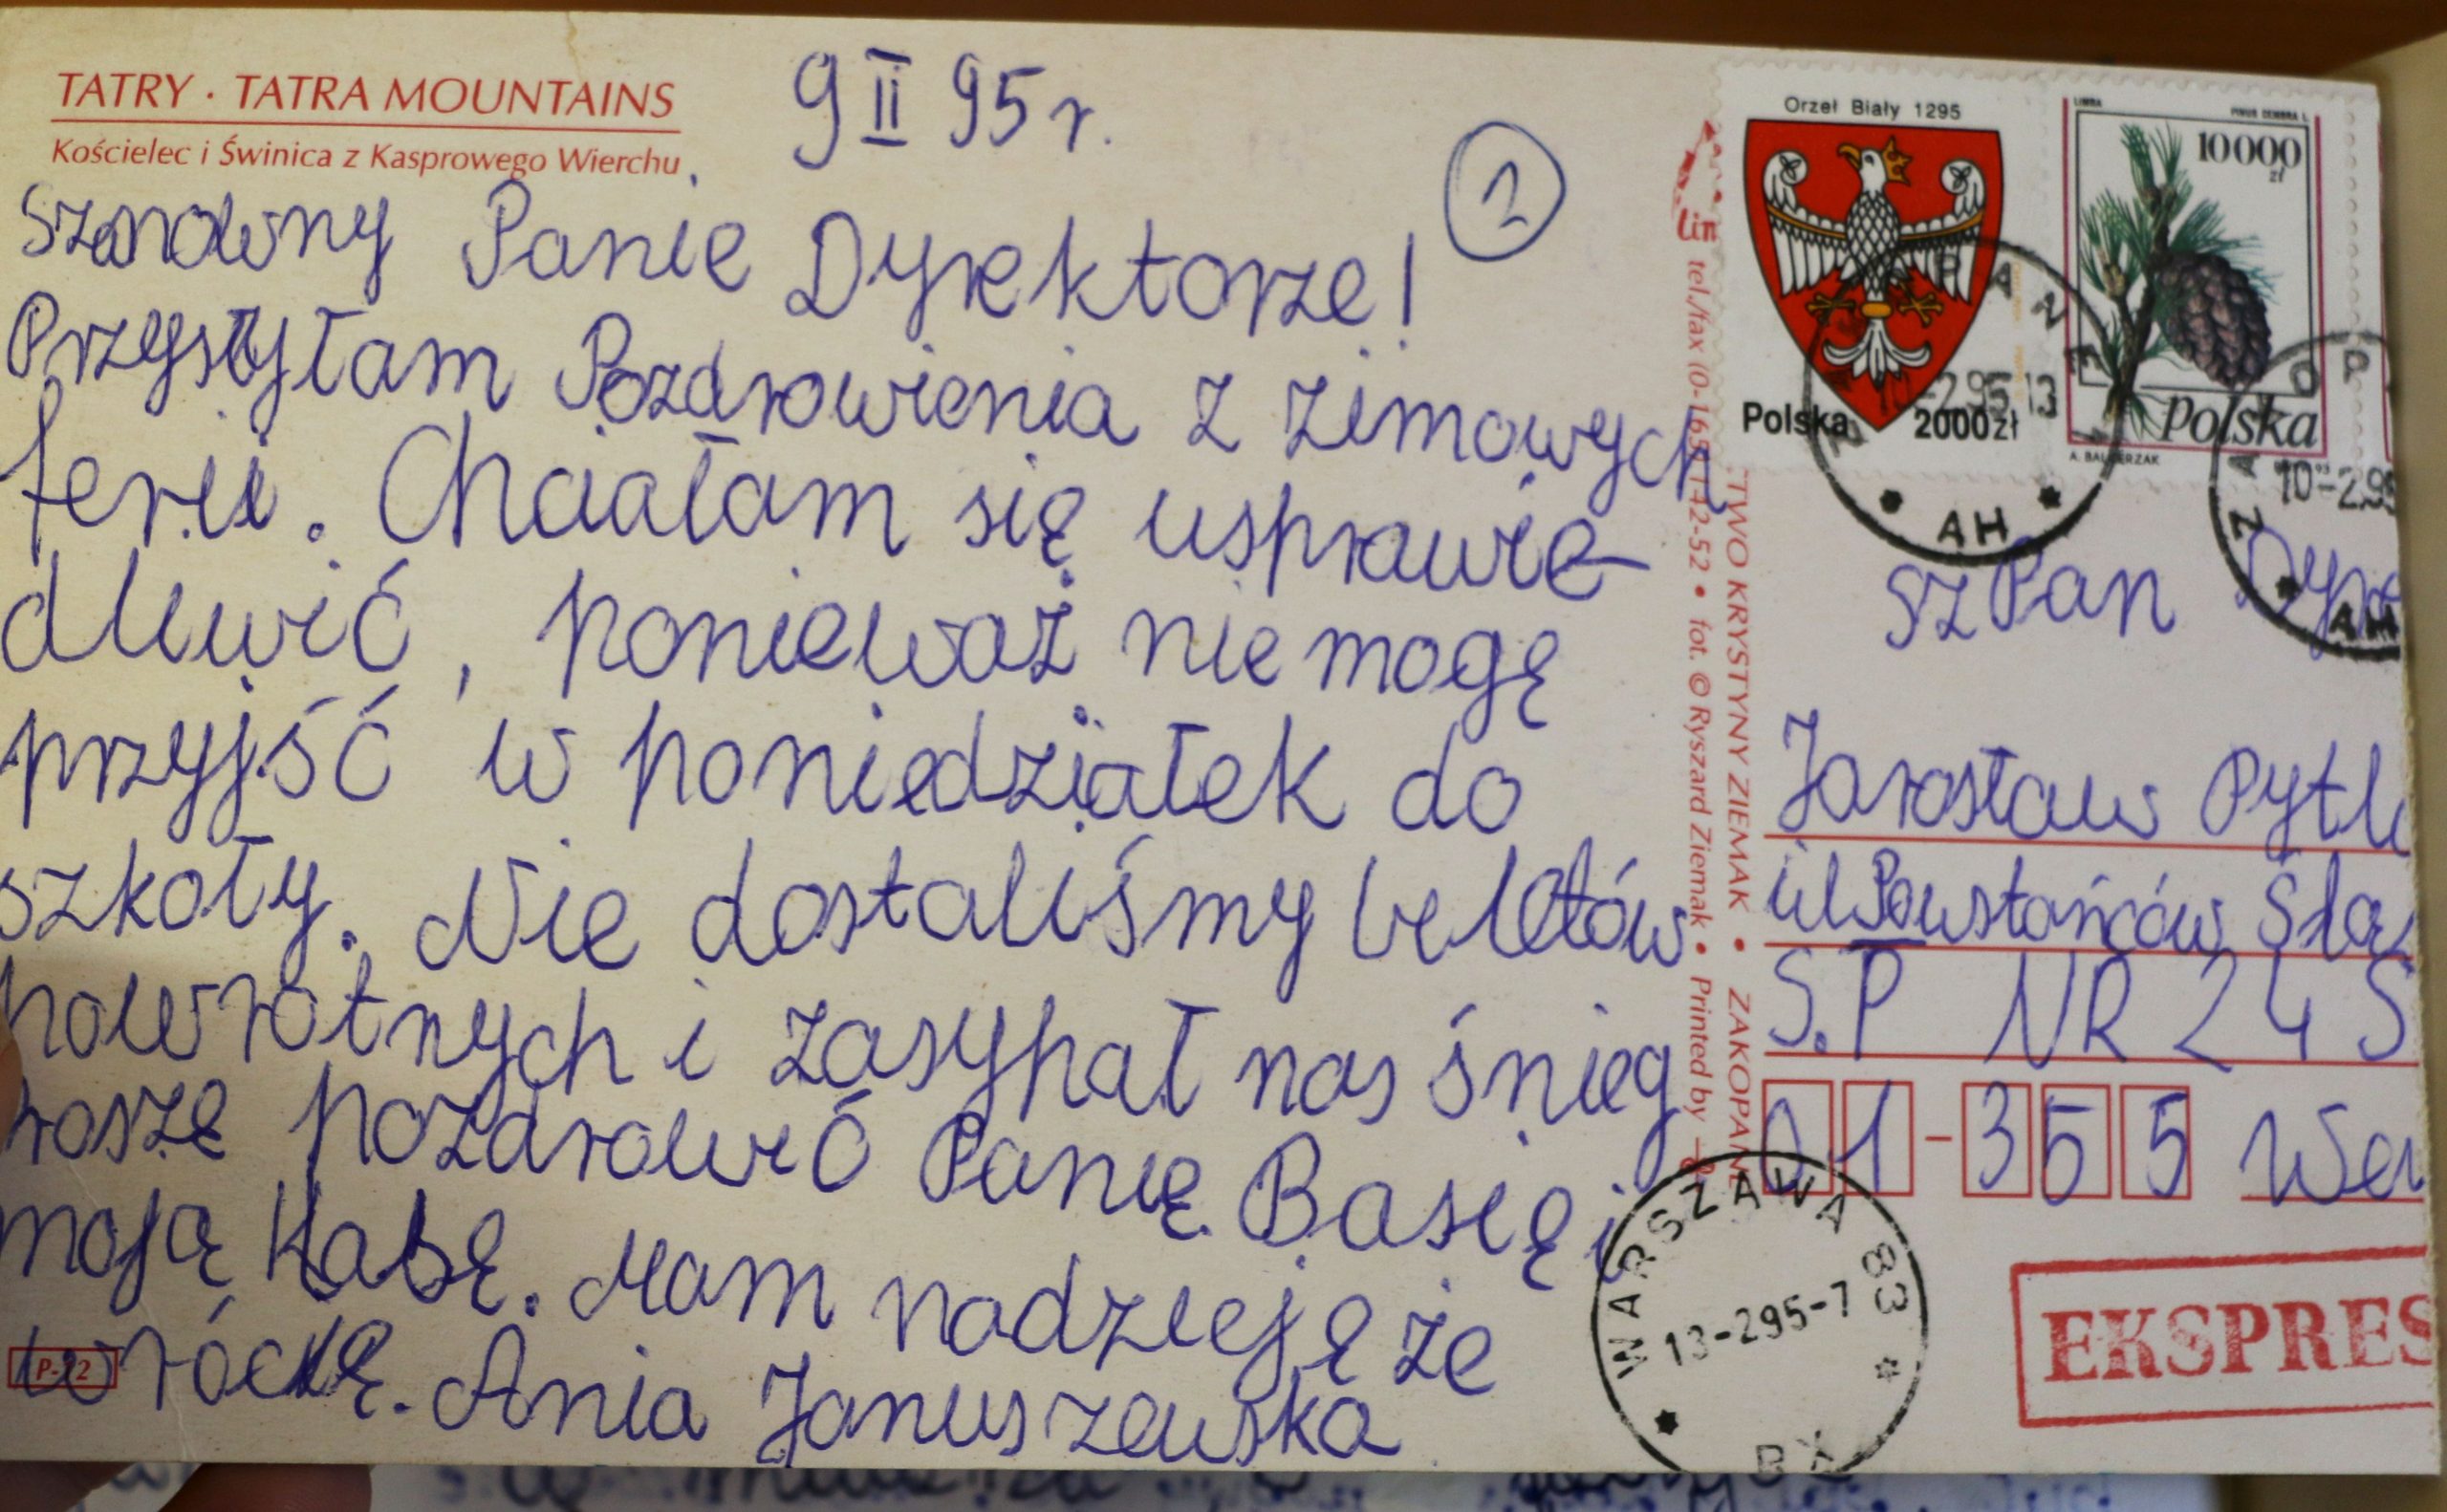 TATRY · TATRA MOUNTAINS
Kościelec i Świnica z Kasprowego Wierchu
9 II 95 r.
2
Szanowny Panie Dyrektorze!
Przysyłam Pozdrowienia z zimowych
ferii. Chciałam się usprawie-
dliwić, ponieważ nie mogę
przyjść w poniedziałek do
szkoły. Nie dostaliśmy biletów
powrotnych i zasypał nas śnieg
rosze pozdrowić Panię Basię i
moją Kasę. Mam nadzieję że
wrócę. Ania Januszewska
P-22
tel./fax (0-165) 142-52 • fot. © Ryszard Ziemak • Printed by
TWO KRYSTYNY ZIEMAK • ZAKOPANE
Orzeł Biały 1295
Polska 2000 zł
LIMBA PINUS CEMBRA L.
10000 zł
polska
A. BALCERZAK
2.95 13
AH
10-2.95
AH
Sz Pan Dyr
Jarosław Pytl
ul Powstańców Ślą
S.P NR 24 S
01-355 Wa
WARSZAWA 83
13-2.95-7
BX
EKSPRES